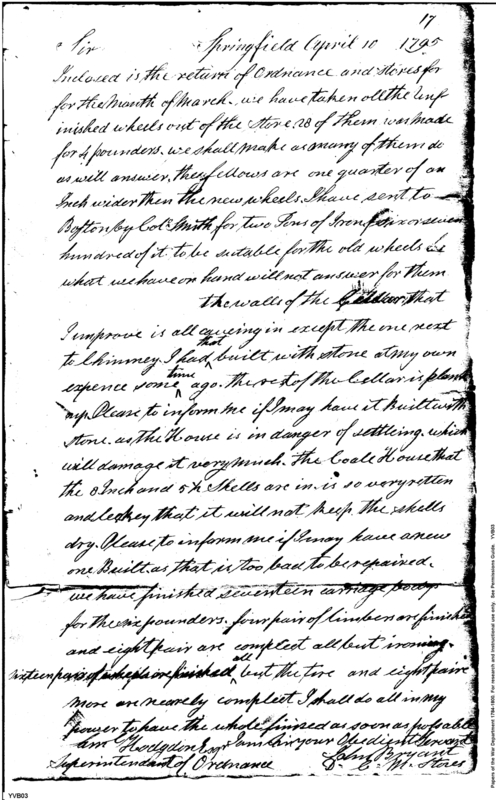 17
Sir Springfield April 10 1795
Inclosed is the return of Ordnance and Stores for
for the Month of March. we have taken all the unf
inished wheels out of the Store 28 of them was made
for 4 pounders. we shall make as many of them do
as will answer, they fellows are one quarter of an
Inch wider then the new wheels. I have sent to
Boston by Colo. Smith for two Tons of Iron six or seven
hundred of it to be suitable for the old wheels
what we have on hand will not answer for them
the walls of the Cellar, that
I improve is all caveing in except the one next
to Chimney. I had that built with stone at my own
expence some time ago. the rest of the Cellar is plank
up. Please to inform me if I may have it built with
stone. as the House is in danger of settling. which
will damage it very much. The Coale House that
the 8 Inch and 5½ Shells are in. is so very rotten
and leekey that it will not keep the shells
dry. Please to inform me if I may have a new
one Built. as that is too bad to be repaired.
we have finished seventeen carriage bodys
for the six pounders. four pair of limbers are finished
and eight pair are compleet all but ironing.
sixteen pairs of wheels are finished all but the tire and eight paire
more are nearely compleet I shall do all in my
power to have the whole finised as soon as possable
Sam Hodgdon Esqr. I am Sir your Obedient Servant
Superintendant of Ordnance John Bryant
D. C. M. Stores
YVB03
Papers of the War Department 1784-1800. For research and instructional use only. See Permissions Guide. YVB03